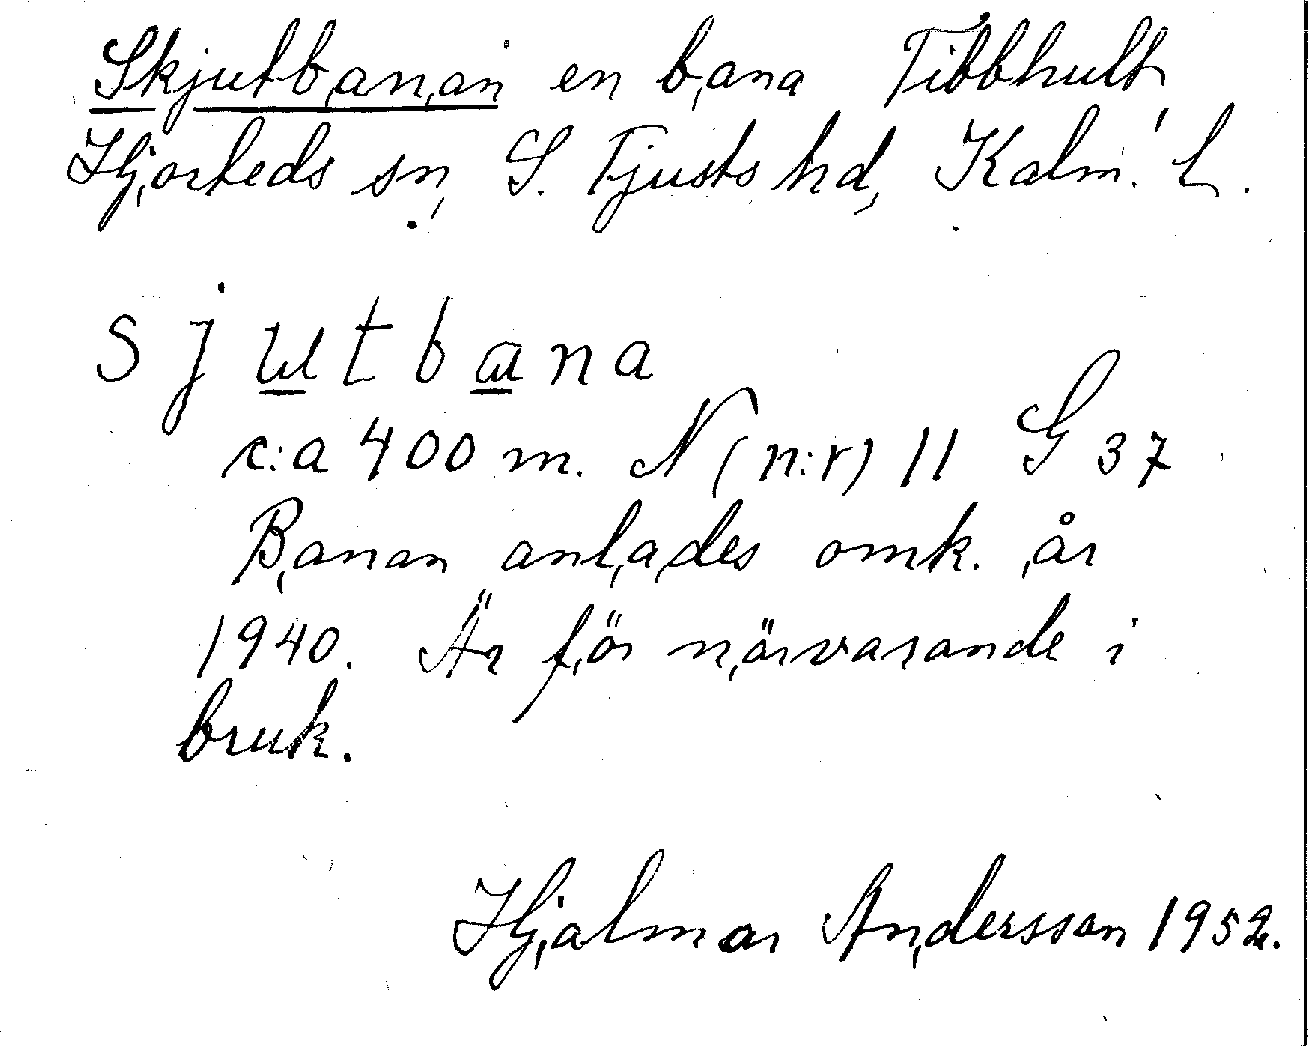 Skjutbanan en bana Tibbhult
Hjorteds sn, S. Tjusts hd, Kalm. l.
sjutbana
c:a 400 m. N (n:r) 11 G 37
Banan anlades omk. år
1940. Är för närvarande i
bruk.
Hjalmar Andersson 1952.